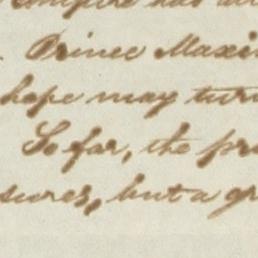 empire has
. Prince Maxi
hope may turn
So far, the pr
sures, but a gr